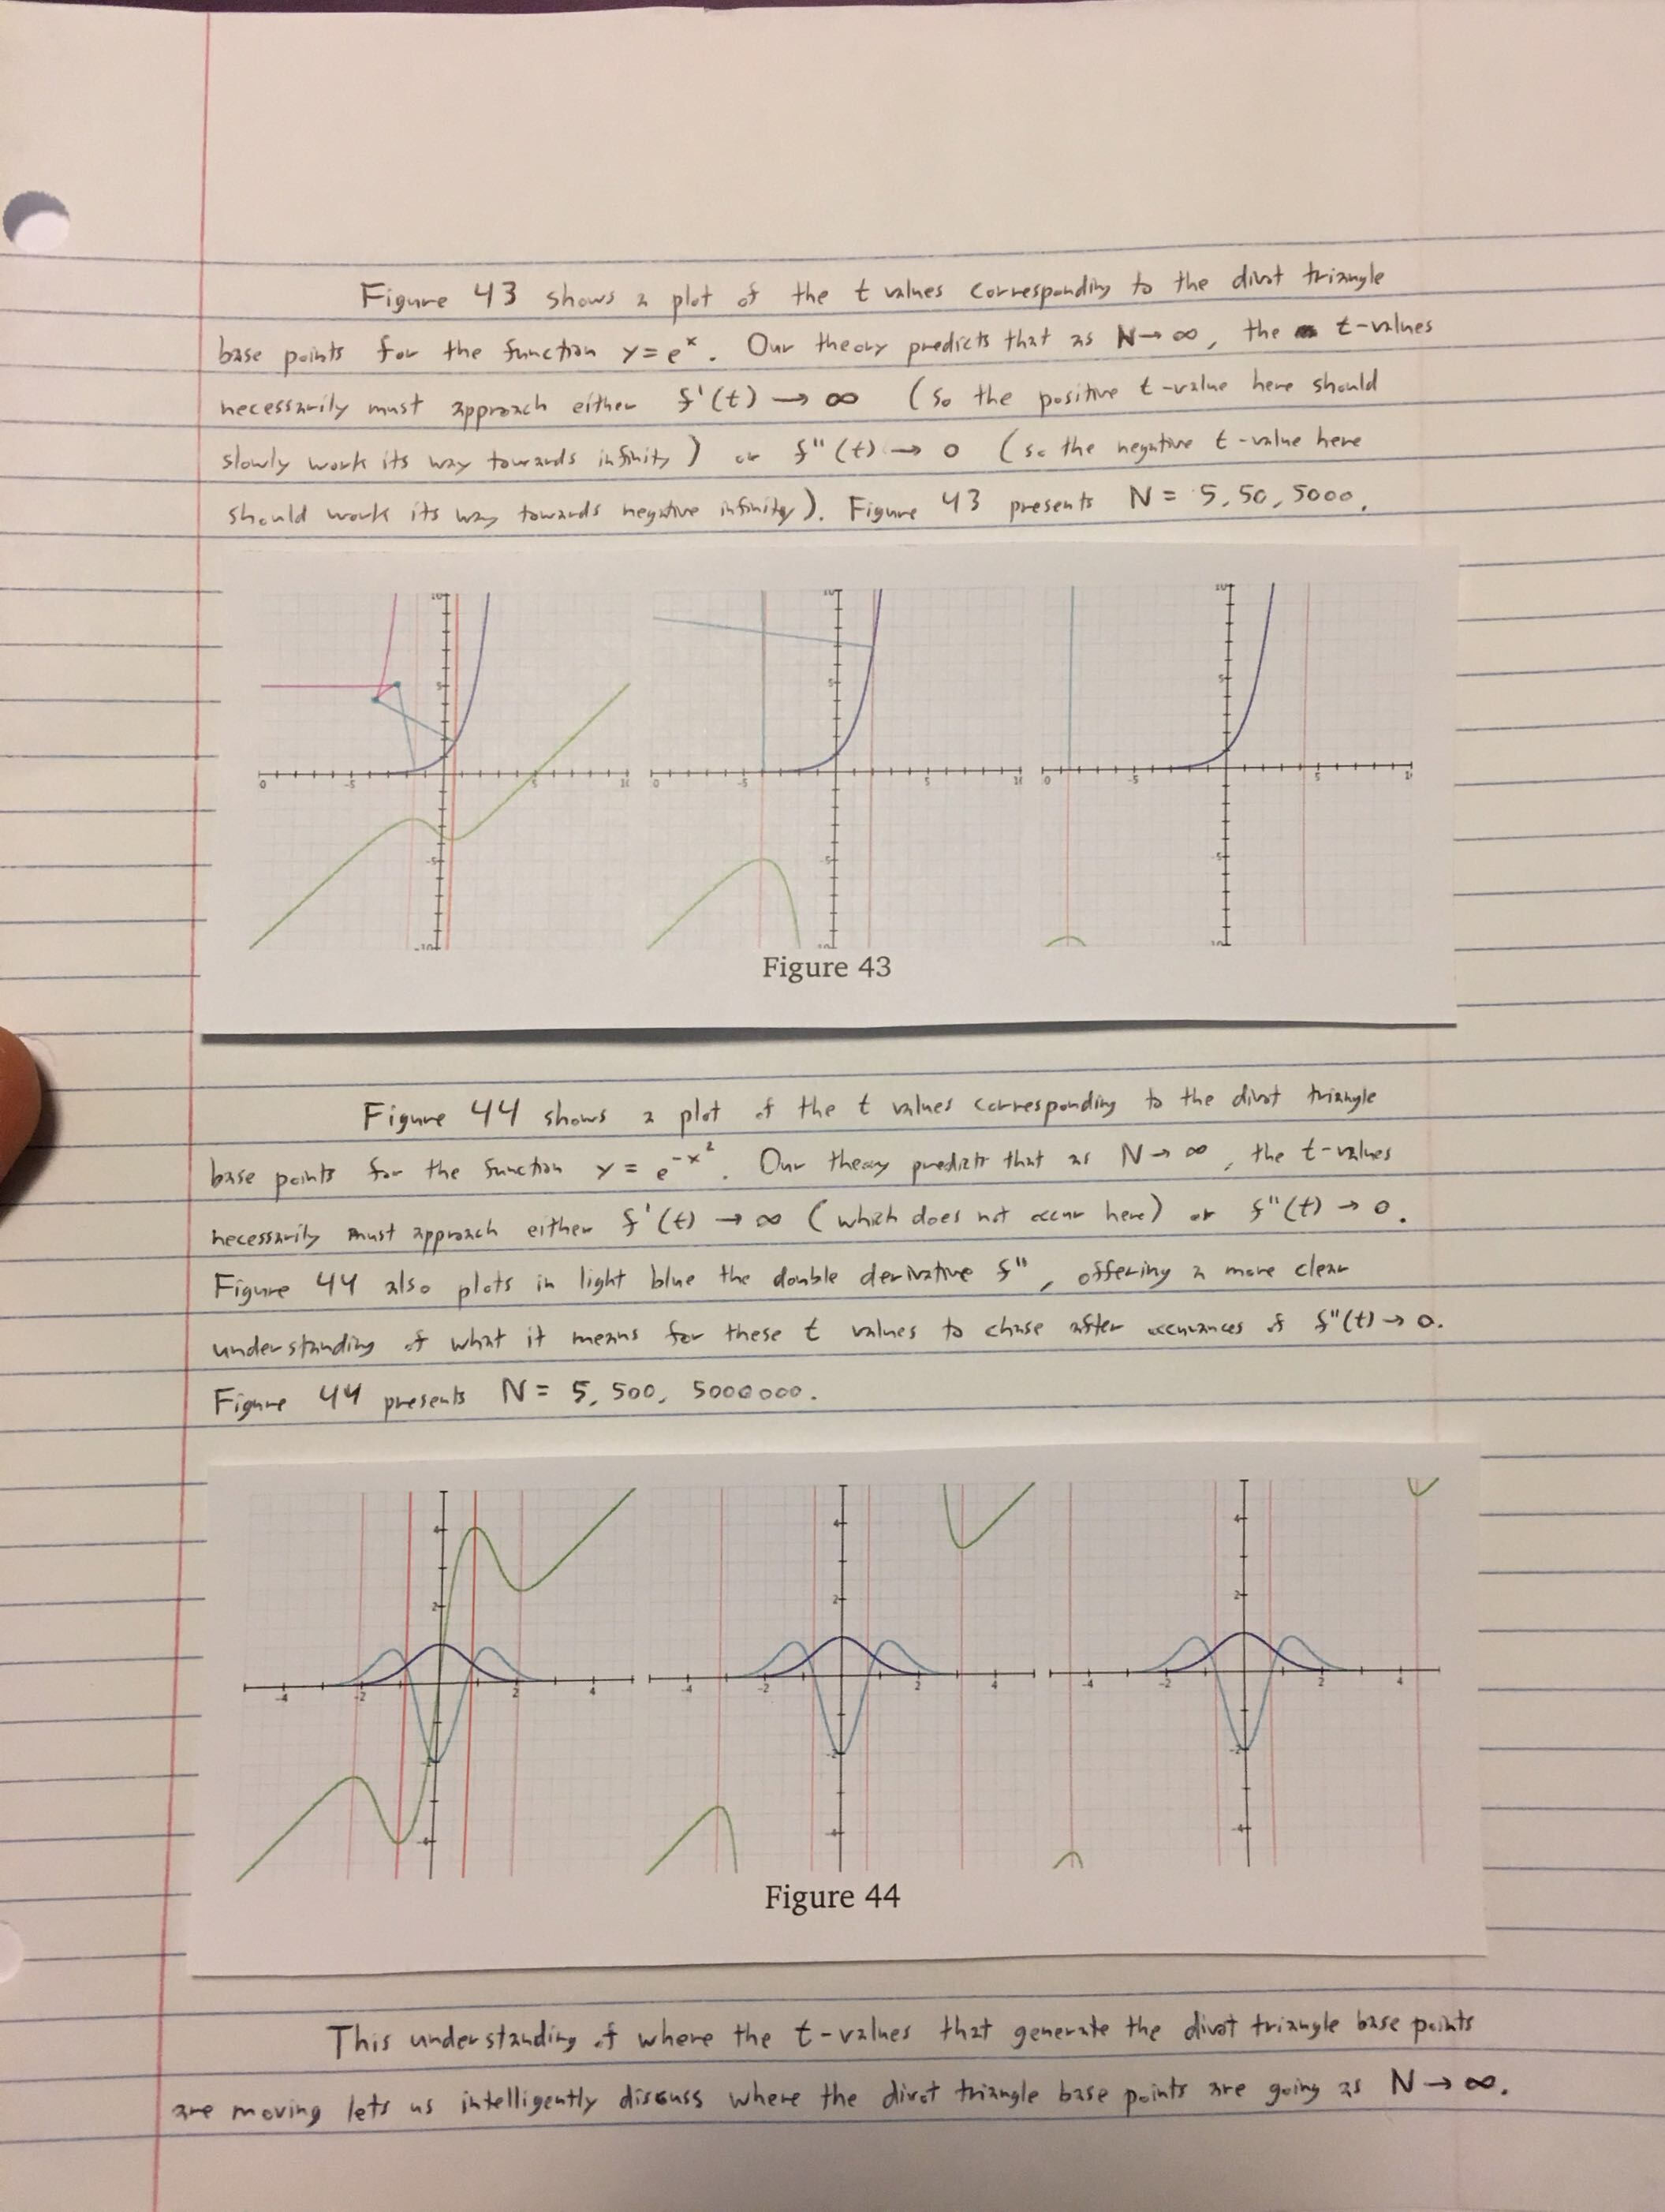 Figure 43 shows a plot of the t values corresponding to the divot triangle
base points for the function y = eˣ. Our theory predicts that as N → ∞, the t-values
necessarily must approach either f'(t) → ∞ (so the positive t-value here should
slowly work its way towards infinity) or f"(t) → 0 (so the negative t-value here
should work its way towards negative infinity). Figure 43 presents N = 5, 50, 5000.
Figure 43
Figure 44 shows a plot of the t values corresponding to the divot triangle
base points for the function y = e^-x². Our theory predicts that as N → ∞, the t-values
necessarily must approach either f'(t) → ∞ (which does not occur here) or f"(t) → 0.
Figure 44 also plots in light blue the double derivative f", offering a more clear
understanding of what it means for these t values to chase after occurances of f"(t) → 0.
Figure 44 presents N = 5, 500, 5000000.
Figure 44
This understanding of where the t-values that generate the divot triangle base points
are moving lets us intelligently discuss where the divot triangle base points are going as N → ∞.